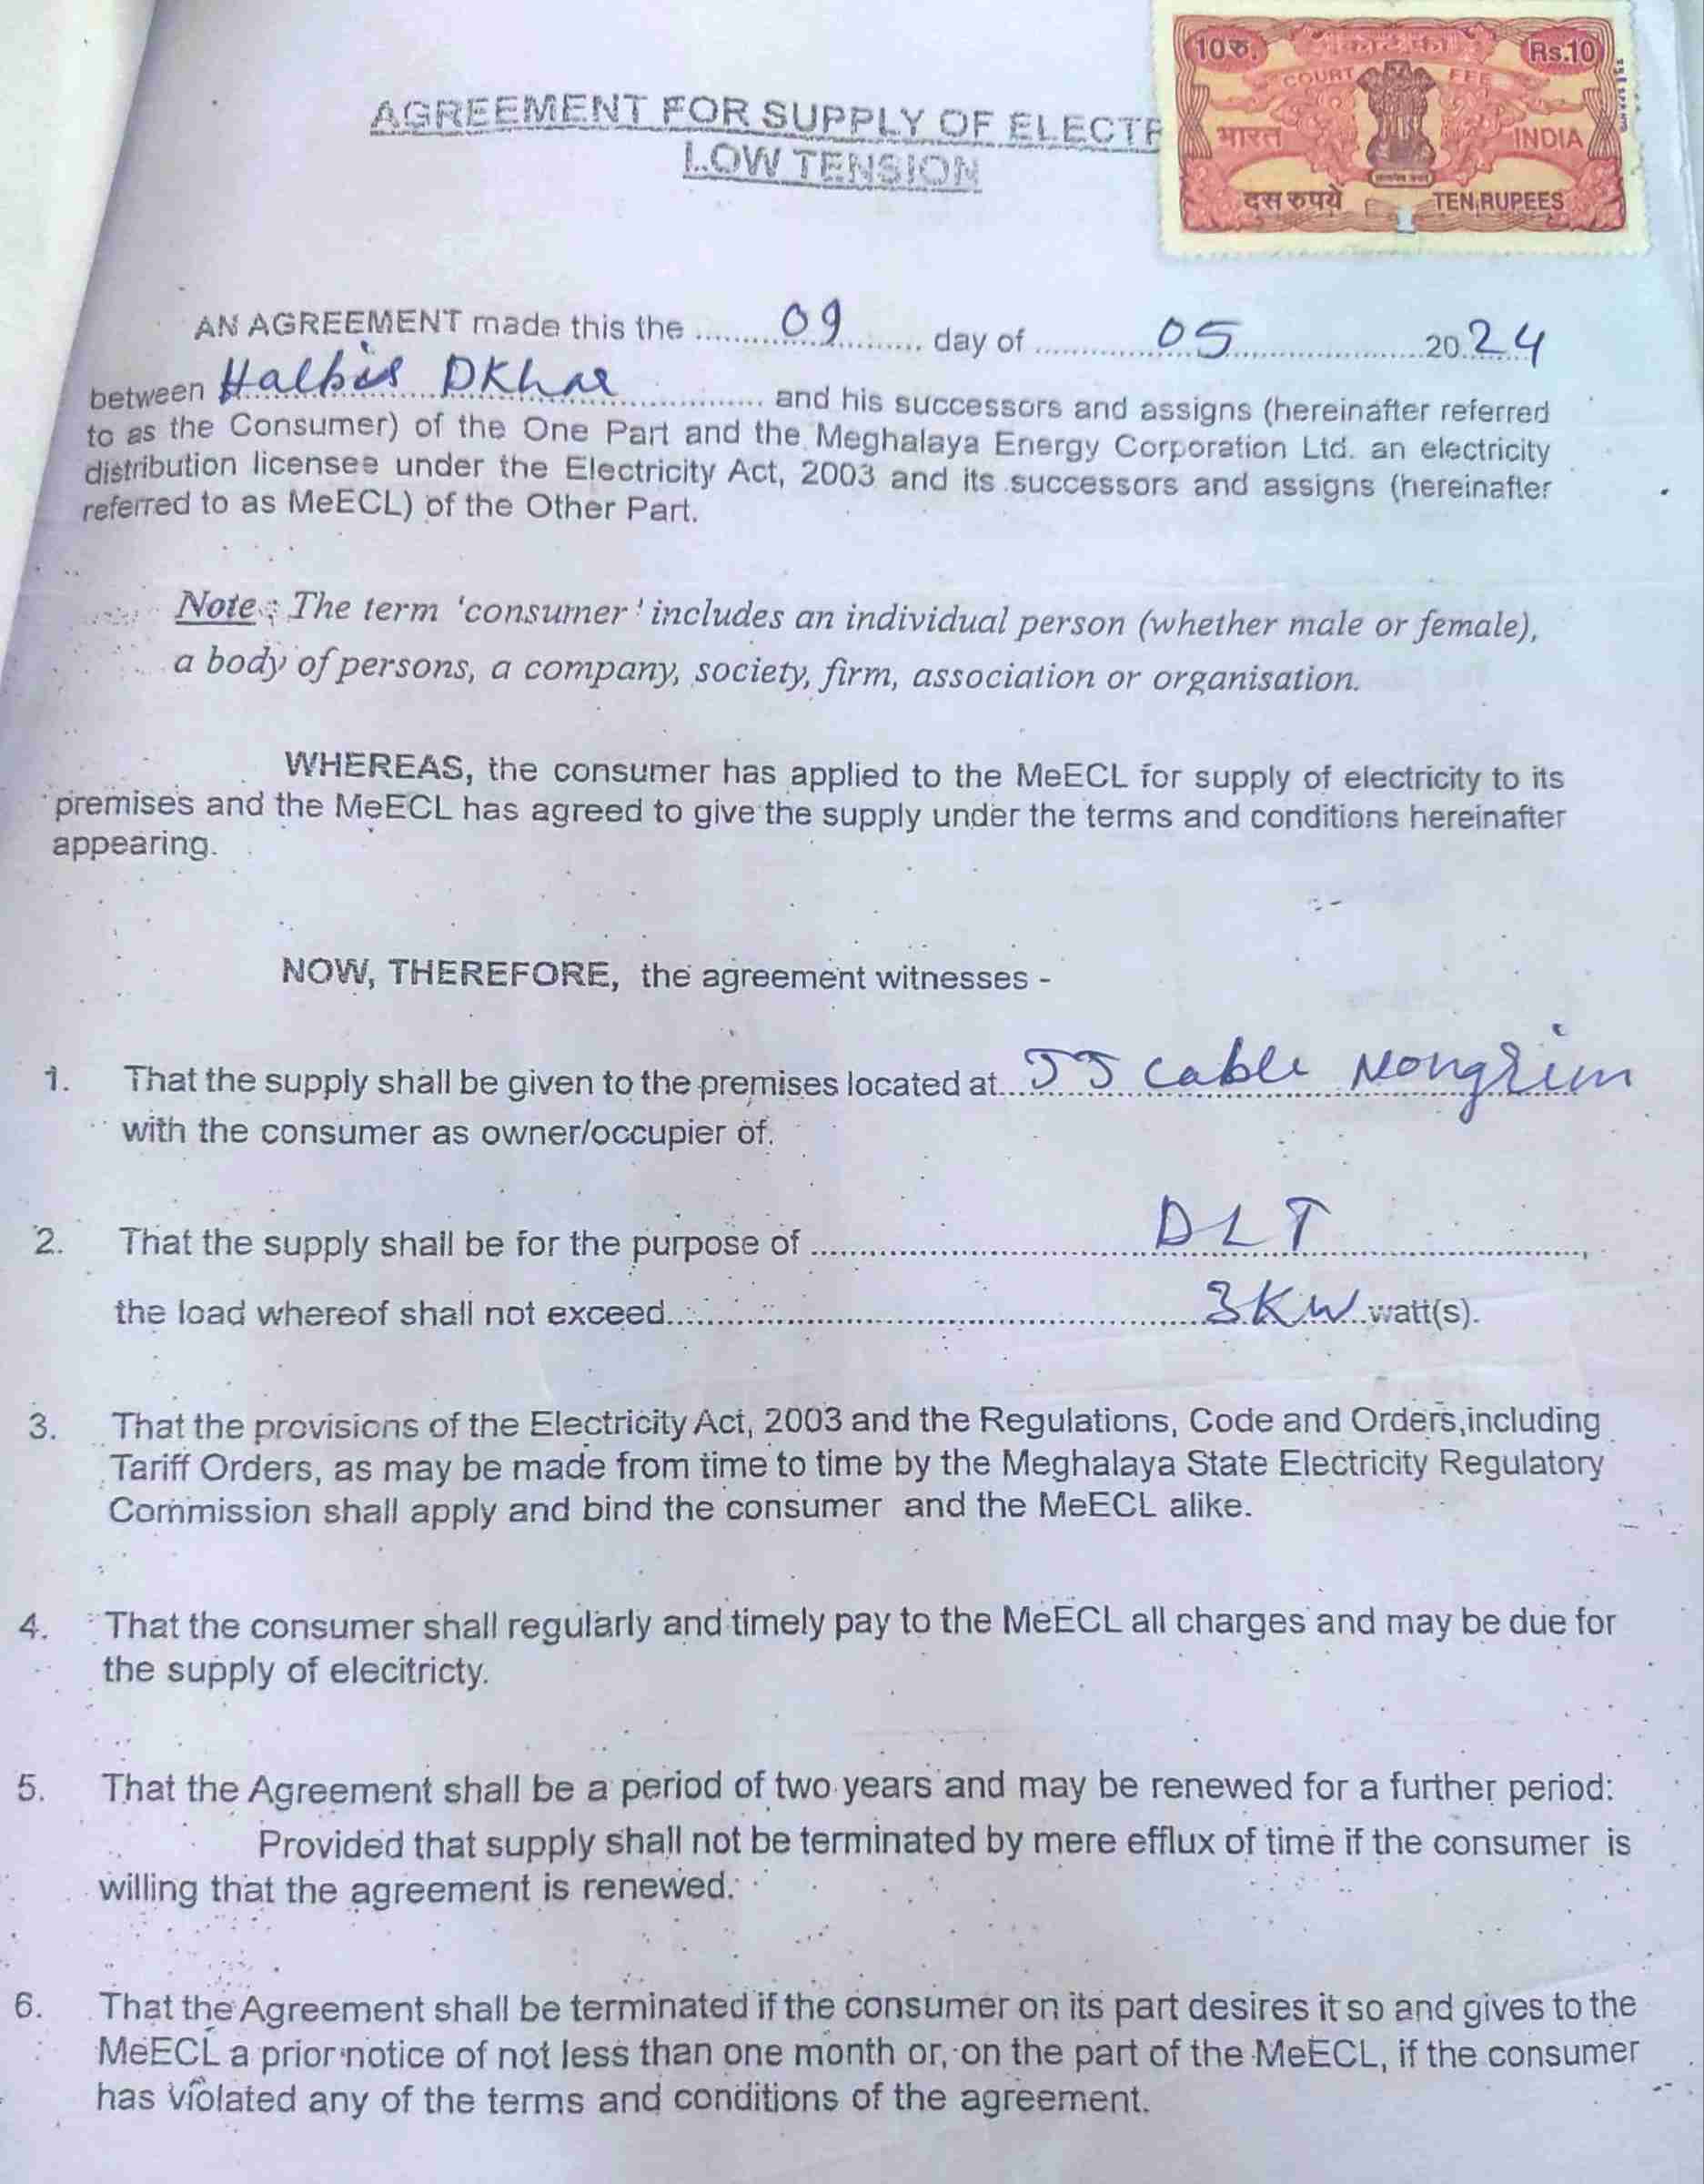 AGREEMENT FOR SUPPLY OF ELECTR
LOW TENSION
10रु. कोर्ट फी Rs.10
COURT FEE
भारत INDIA
दस रुपये TEN RUPEES
AN AGREEMENT made this the ........09........ day of ........05........ 20.24
between Halbis DKhar ........ and his successors and assigns (hereinafter referred
to as the Consumer) of the One Part and the Meghalaya Energy Corporation Ltd. an electricity
distribution licensee under the Electricity Act, 2003 and its successors and assigns (hereinafter
referred to as MeECL) of the Other Part.
Note : The term 'consumer' includes an individual person (whether male or female),
a body of persons, a company, society, firm, association or organisation.
WHEREAS, the consumer has applied to the MeECL for supply of electricity to its
premises and the MeECL has agreed to give the supply under the terms and conditions hereinafter
appearing.
NOW, THEREFORE, the agreement witnesses -
1. That the supply shall be given to the premises located at...JJ Cable Nongrim
with the consumer as owner/occupier of.
2. That the supply shall be for the purpose of ........DLT........,
the load whereof shall not exceed........3KW...watt(s).
3. That the provisions of the Electricity Act, 2003 and the Regulations, Code and Orders,including
Tariff Orders, as may be made from time to time by the Meghalaya State Electricity Regulatory
Commission shall apply and bind the consumer and the MeECL alike.
4. That the consumer shall regularly and timely pay to the MeECL all charges and may be due for
the supply of elecitricty.
5. That the Agreement shall be a period of two years and may be renewed for a further period:
Provided that supply shall not be terminated by mere efflux of time if the consumer is
willing that the agreement is renewed.
6. That the Agreement shall be terminated if the consumer on its part desires it so and gives to the
MeECL a prior notice of not less than one month or, on the part of the MeECL, if the consumer
has violated any of the terms and conditions of the agreement.